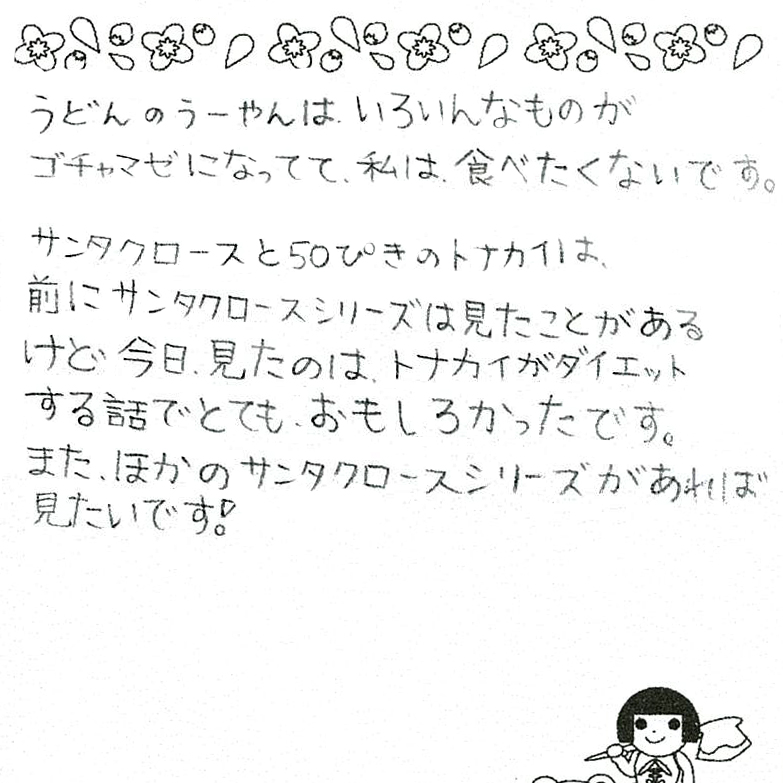 うどんのうーやんは、いろいんなものが
ゴチャマゼになってて、私は、食べたくないです。
サンタクロースと50ぴきのトナカイは、
前にサンタクロースシリーズは見たことがある
けど、今日、見たのは、トナカイがダイエット
する話でとても、おもしろかったです。
また、ほかのサンタクロースシリーズがあれば
見たいです!